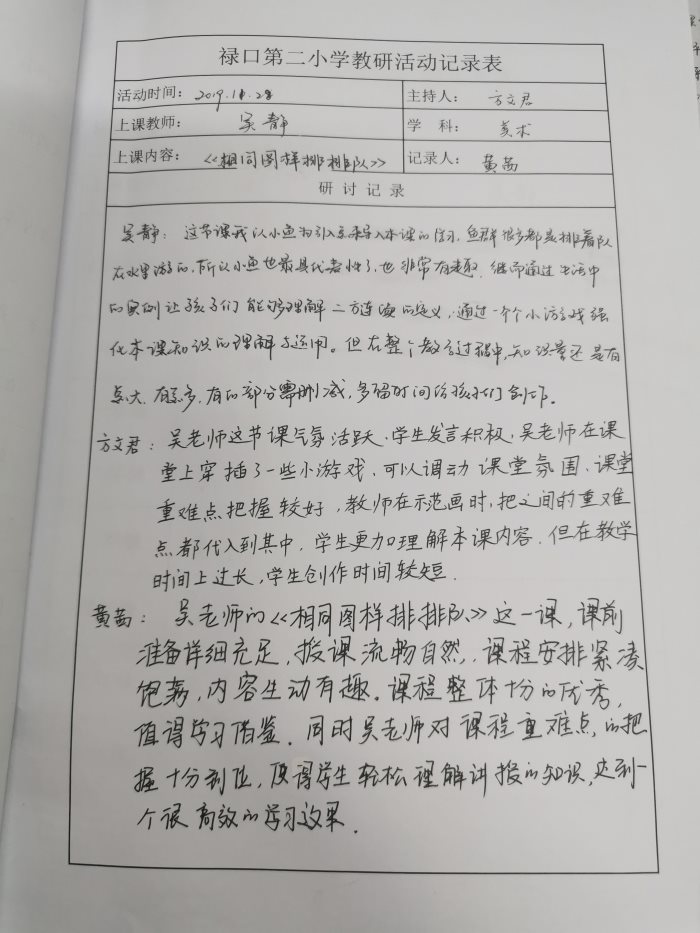 禄口第二小学教研活动记录表
活动时间：2019.11.28 主持人：方文君
上课教师：吴静 学科：美术
上课内容：《相同图样排排队》 记录人：黄茜
研讨记录
吴静：这节课我以小鱼为引入来导入本课的学习，鱼群很多都是排着队
在水里游的，所以小鱼也最具代表性了，也非常有趣。继而通过生活中
的实例让孩子们能够理解二方连续的定义，通过一个个小游戏强
化本课知识的理解与运用。但在整个教学过程中，知识量还是有
点大，有点多，有的部分需删减，多留时间给孩子们创作。
方文君：吴老师这节课气氛活跃，学生发言积极，吴老师在课
堂上穿插了一些小游戏，可以调动课堂氛围，课堂
重难点把握较好，教师在示范画时，把之间的重难
点都代入到其中，学生更加理解本课内容，但在教学
时间上过长，学生创作时间较短．
黄茜：吴老师的《相同图样排排队》这一课，课前
准备详细充足，授课流畅自然，课程安排紧凑
饱满，内容生动有趣。课程整体十分的优秀，
值得学习借鉴．同时吴老师对课程重难点，的把
握十分到位，使得学生轻松理解讲授的知识，达到一
个很高效的学习效果．